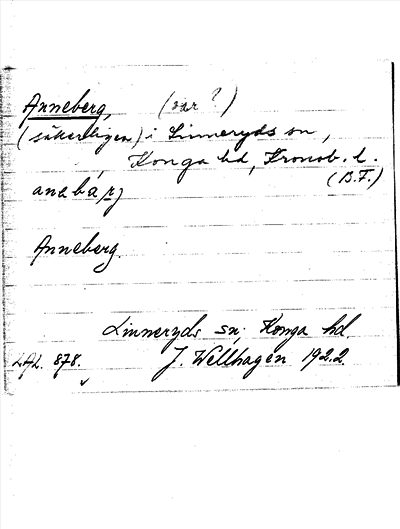 Anneberg, (var?)
(säkerligen) i Linneryds sn,
Konga hd, Kronob. l.
(B.F.)
anebárj
Anneberg.
Linneryds sn, Konga hd.
LAL. 878. J. Wellhagen 1922.